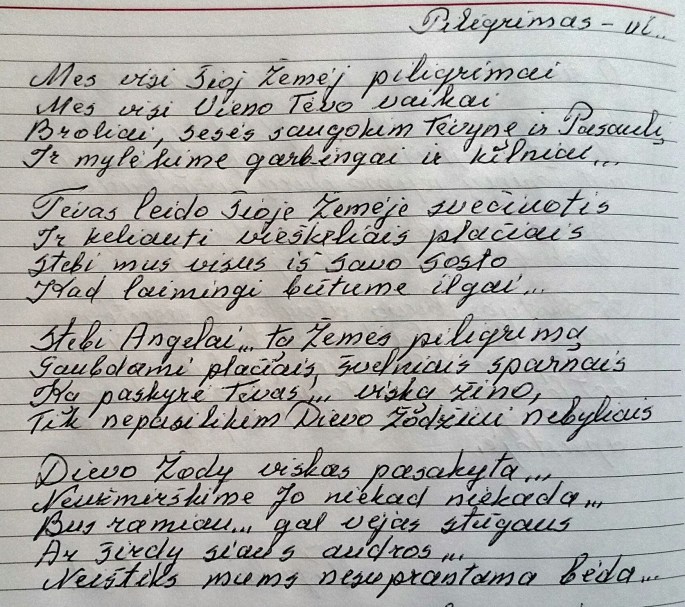 Piligrimas - ui..
Mes visi šioj Žemėj piligrimai
Mes visi Vieno Tėvo vaikai
Broliai, sesės saugokim Tėvynę ir Pasaulį
Ir mylėkime garbingai ir kilniai...
Tėvas leido šioje Žemėje svečiuotis
Ir keliauti vieškeliais plačiais
Stebi mus visus iš savo sosto
Kad laimingi būtume ilgai...
Stebi Angelai... tą Žemės piligrimą
Gaubdami plačiais, švelniais sparnais
Ką paskyrė Tėvas... viską žino,
Tik nepasilikim Dievo Žodžiui nebyliais
Dievo Žody viskas pasakyta...
Neužmirškime Jo niekad niekada...
Bus ramiau... gal vėjas stūgaus
Ar širdy siaus audros...
Neištiks mums nesuprantama bėda...